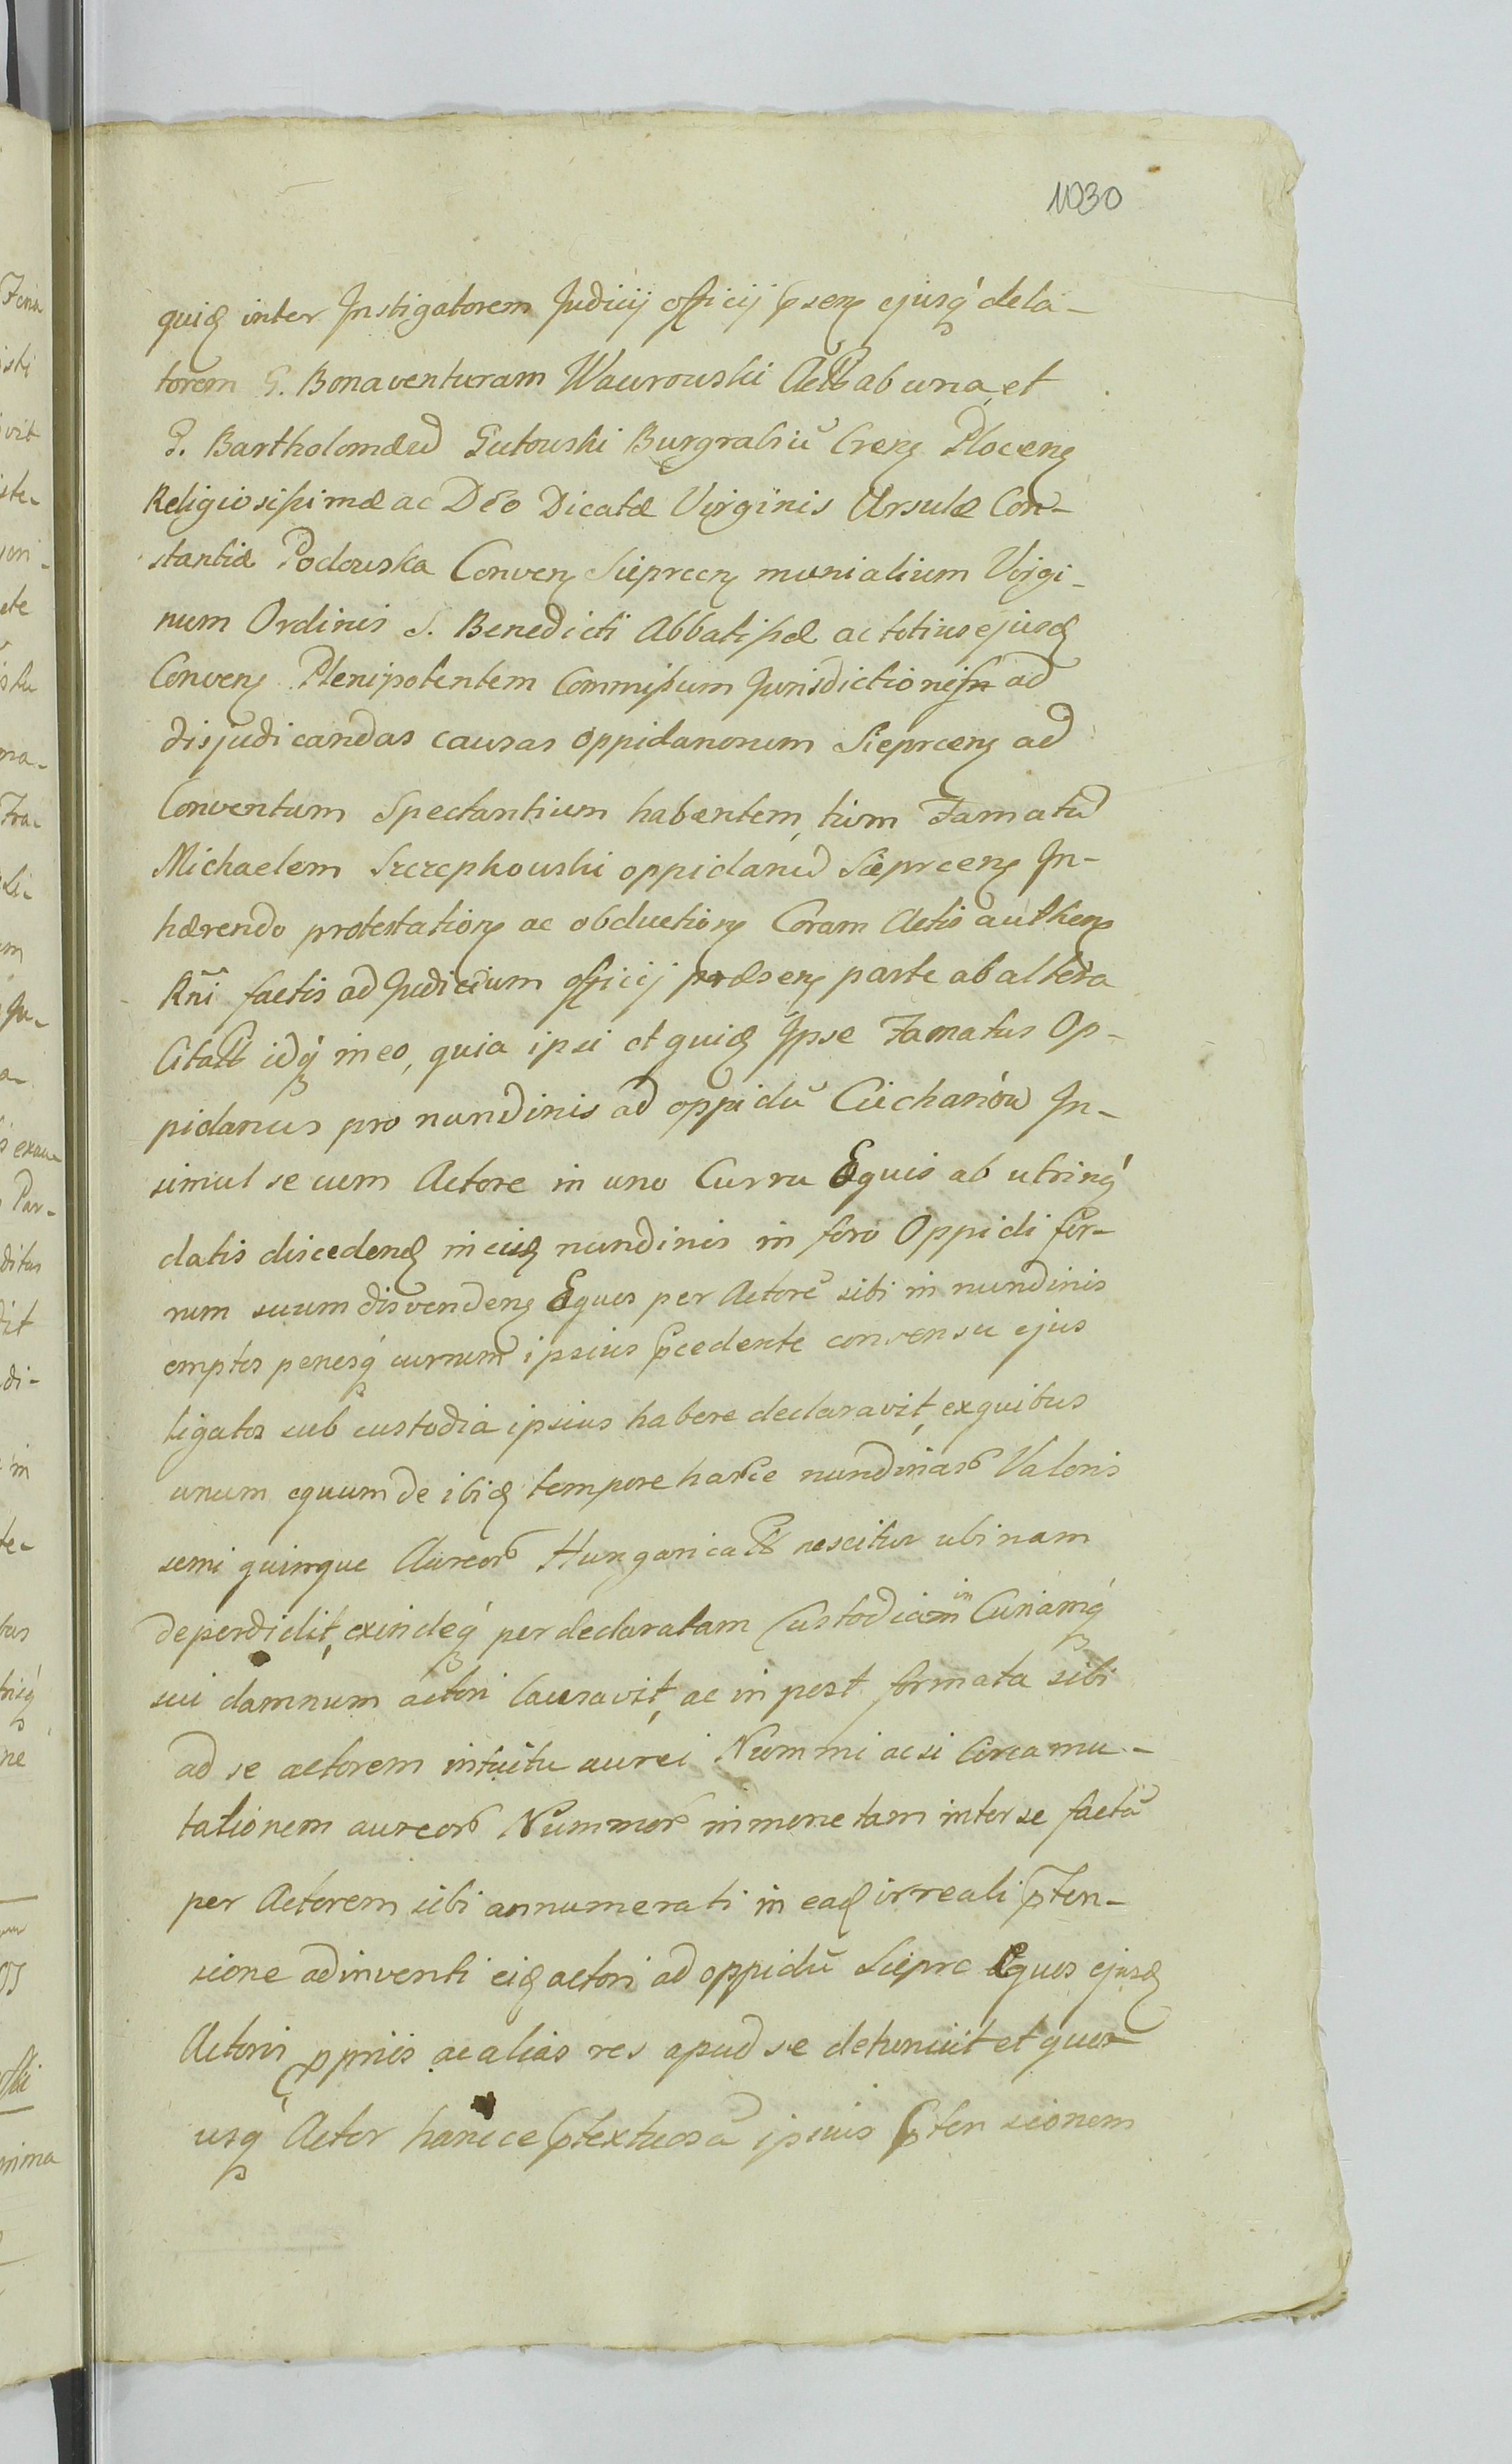 1030
quidē inter Instigatorem Judicij officij psen. ejusq́ dela-
torem G. Bonaventuram Wawrowski Actb ab una, et
G. Bartholomæū Gutowski Burgrabiū Cren. Plocen.
Religiosissimæ ac Deo Dicatæ Virginis Ursulæ Con-
stantiæ Podowska Conven. Sieprcen. monialium Virgi-
num Ordinis S. Benedicti Abbatissæ ac totius ejusd.
Conven. Plenipotentem Commissum Jurisdictionem ad
disjudicandas causas oppidanorum Sieprcen. ad
Conventum Spectantium habentem, tum Famatū
Michaelem Szczepkowski oppidanū Sieprcen. In-
hærendo protestation. ac obduction. Coram Actis authen.
Rñi factis ad Judicium officij præsen. parte ab altera
Citatt idq́ in eo, quia ipsi et quid. Ipse Famatus Op-
pidanus pro nundinis ad oppidū Ciechanów In-
simul se cum Actore in uno Curru Equis ab utrinq́
datis discedend. in eisd. nundinis in foro Oppidi for-
rum suum disvenden. Equos per Actorē sibi in nundinis
emptos penesq́ currum ipsius pcedente consensu ejus
ligatos sub custodia ipsius habere declaravit, ex quibus
unum equum de ibid. tempore harce nundinarb Valoris
semi quinque Aureorb Hungarica nescitur ubinam
deperdidit, exindeq́ per declaratam Custodiam in Curiamq́
sui damnum actori causavit, ac in post formata sibi
ad se actorem intuitu aurei Nummi ac si circa mu-
tationem aureorb Nummorb in monetam inter se factā
per Actorem sibi annumerati in ead. irreali pten-
sione adinventi eid. actori ad oppidū Sieprc Equos ejusd.
Actoris pprios ac alias res apud se detenuit et quous
usq́ Actor hancce ptextuosā ipsius ptensionem